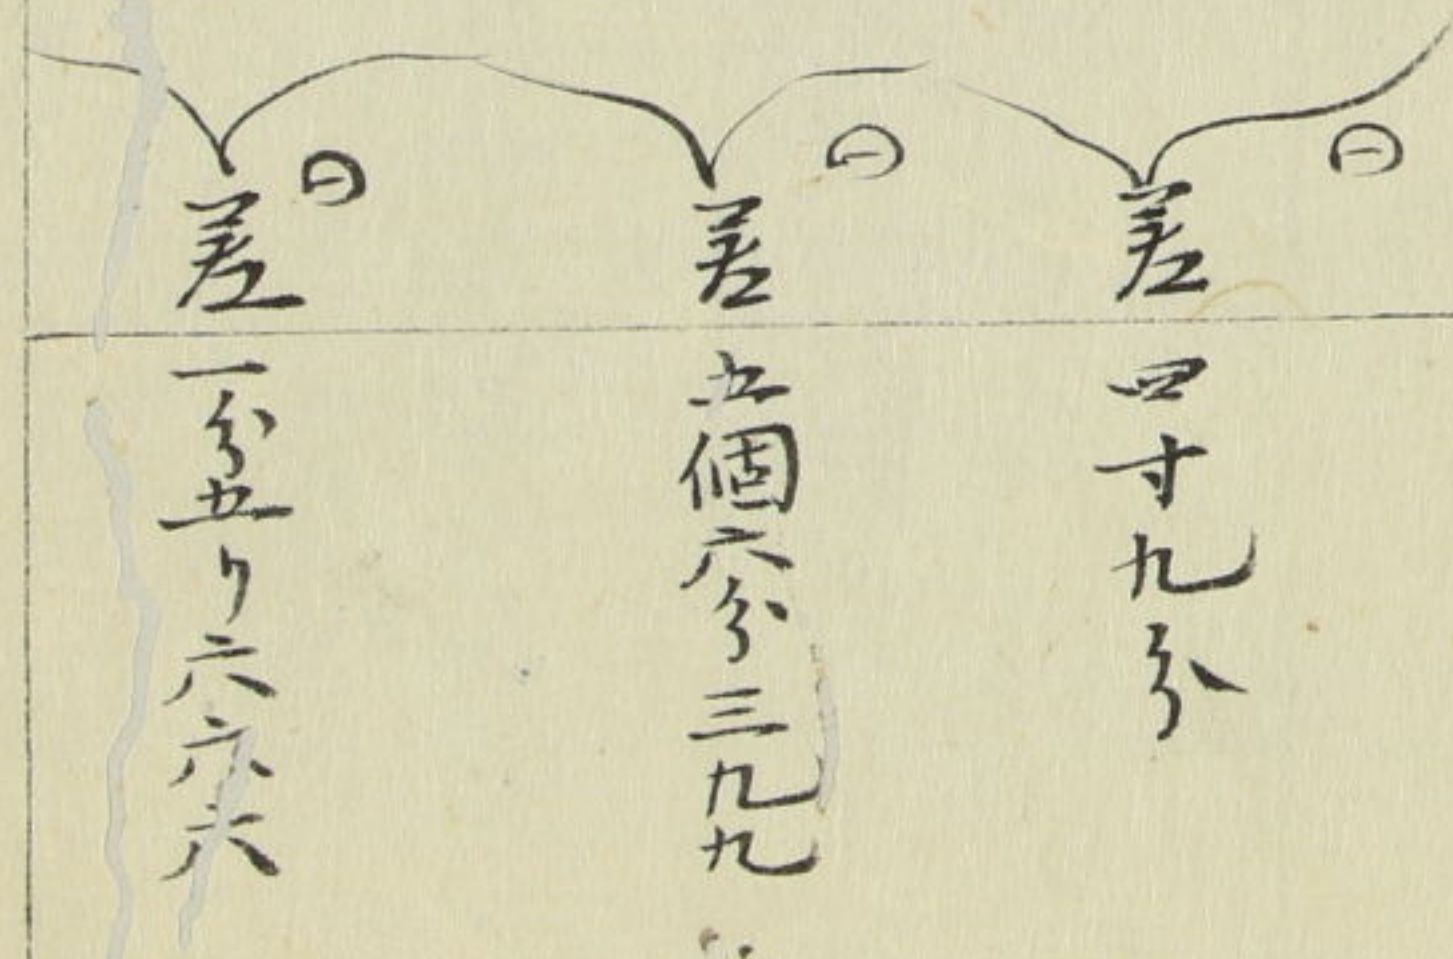 ㊀
差
四寸九分
㊀
差
五個六分三九九
㊀
差
一分五リ六六六